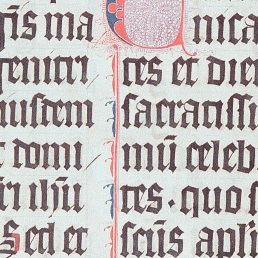 gīs ma
enitri
iusdem
et domi
ri ihū
Sed et
Cnica
tes et die
sacratissi
mū celeb
tes · quo
scūs apli